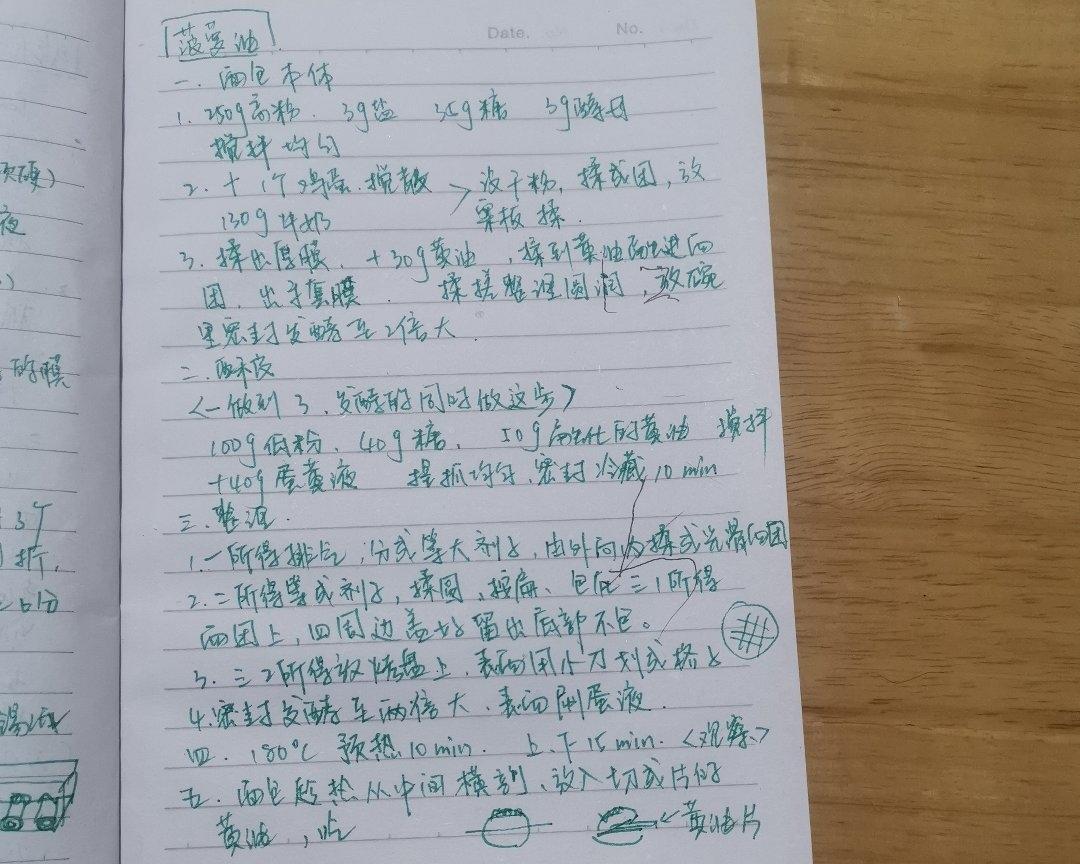 Date.
No.
菠萝油
一. 面包本体
1. 250g高粉. 3g盐 35g糖 3g酵母
搅拌均匀
2. + 1个鸡蛋. 搅散 > 没干粉, 揉成团, 放
130g牛奶 案板 揉.
3. 揉出厚膜. +30g黄油, 揉到黄油 进面
团. 出手套膜. 揉搓整理圆润, 放碗
里密封发酵至2倍大.
二. 酥皮
<一做到3. 发酵的同时做这步>
100g低粉. 40g糖. 50g 化的黄油 搅拌
+40g蛋黄液 抓均匀. 密封冷藏10min
三. 整混.
1. 一所得排气, 分成等大剂子, 由外向内揉成光滑面团
2. 二所得等成剂子, 揉圆, 按扁、包在三1所得
面团上, 四周边盖好留出底部不包。
3. 三2所得放烤盘上. 表面用小刀划成格子
4. 密封发酵至两倍大. 表面刷蛋液.
四. 180℃ 预热10min. 上.下15min. <观察>
五. 面包趁热从中间横剖, 放入切成片的
黄油, 吃
←黄油片
硬)
液
的膜
3个
折.
二 份